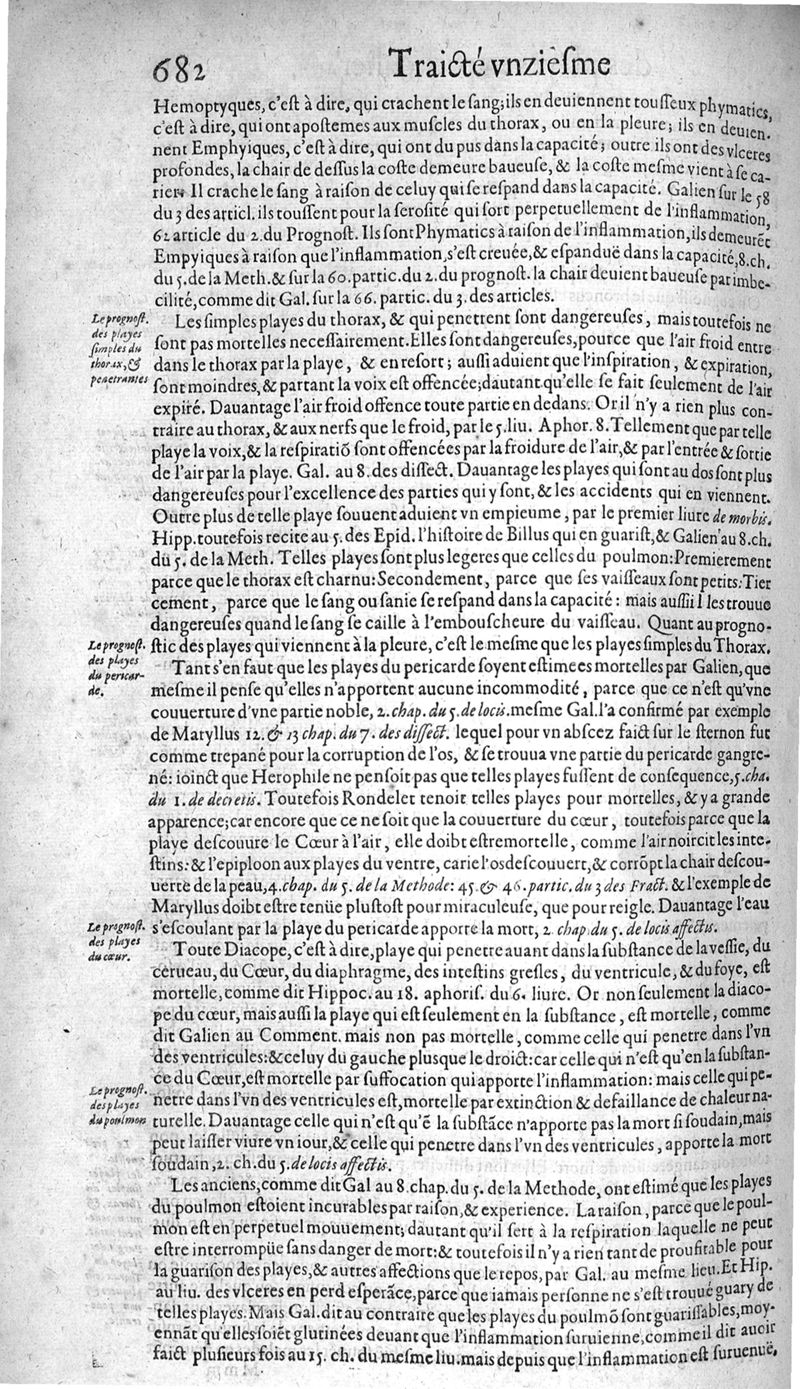 682
Traicté vnziesme
Hemoptyques, c'est à dire, qui crachent le sang; ils en deuiennent tousseux phymatics,
c'est à dire, qui ont apostemes aux muscles du thorax, ou en la pleure; ils en deuien-
nent Emphyiques, c'est à dire, qui ont du pus dans la capacité; outre ils ont des vlceres
profondes, la chair de dessus la coste demeure baueuse, & la coste mesme vient à se ca-
rier. Il crache le sang à raison de celuy qui se respand dans la capacité. Galien sur le 58
du 3 des articl. ils toussent pour la serosité qui sort perpetuellement de l'inflammation,
62 article du 2. du Prognost. Ils sont Phymatics à raison de l'inflammation, ils demeurẽt
Empyiques à raison que l'inflammation, s'est creuée, & espanduë dans la capacité, 8. ch.
du 5. de la Meth. & sur la 60. partic. du 2. du prognost. la chair deuient baueuse par imbe-
cilité, comme dit Gal. sur la 66. partic. du 3. des articles.
Le prognost.
des playes
simples du
thorax, &
penetrantes
Les simples playes du thorax, & qui penetrent sont dangereuses, mais toutefois ne
sont pas mortelles necessairement. Elles sont dangereuses, pource que l'air froid entre
dans le thorax par la playe, & en resort; aussi aduient que l'inspiration, & expiration,
sont moindres, & partant la voix est offencée; dautant qu'elle se fait seulement de l'air
expiré. Dauantage l'air froid offence toute partie en dedans. Or il n'y a rien plus con-
traire au thorax, & aux nerfs que le froid, par le 5. liu. Aphor. 8. Tellement que par telle
playe la voix, & la respiratiõ sont offencées par la froidure de l'air, & par l'entrée & sortie
de l'air par la playe. Gal. au 8. des dissect. Dauantage les playes qui sont au dos sont plus
dangereuses pour l'excellence des parties qui y sont, & les accidents qui en viennent.
Outre plus de telle playe souuent aduient vn empieume, par le premier liure de morbis.
Hipp. toutefois recite au 5. des Epid. l'histoire de Billus qui en guarist, & Galien au 8. ch.
du 5. de la Meth. Telles playes sont plus legeres que celles du poulmon: Premierement
parce que le thorax est charnu: Secondement, parce que ses vaisseaux sont petits: Tier
cement, parce que le sang ou sanie se respand dans la capacité: mais aussi il les trouue
dangereuses quand le sang se caille à l'embouscheure du vaisseau. Quant au progno-
stic des playes qui viennent à la pleure, c'est le mesme que les playes simples du Thorax.
Le prognost.
des playes
du pericar-
de.
Tant s'en faut que les playes du pericarde soyent estimees mortelles par Galien, que
mesme il pense qu'elles n'apportent aucune incommodité, parce que ce n'est qu'vne
couuerture d'vne partie noble, 2. chap. du 5. de locis. mesme Gal. l'a confirmé par exemple
de Maryllus 12. & 13 chap. du 7. des dissect. lequel pour vn abscez faict sur le sternon fut
comme trepané pour la corruption de l'os, & se trouua vne partie du pericarde gangre-
né: ioinct que Herophile ne pensoit pas que telles playes fussent de consequence, 5. cha.
du 1. de decretis. Toutefois Rondelet tenoit telles playes pour mortelles, & y a grande
apparence; car encore que ce ne soit que la couuerture du cœur, toutefois parce que la
playe descouure le Cœur à l'air, elle doibt estre mortelle, comme l'air noircit les inte-
stins: & l'epiploon aux playes du ventre, carie l'os descouuert, & corrõpt la chair descou-
uerte de la peau, 4. chap. du 5. de la Methode: 45. & 46. partic. du 3 des Fract. & l'exemple de
Maryllus doibt estre tenüe plustost pour miraculeuse, que pour reigle. Dauantage l'eau
s'escoulant par la playe du pericarde apporte la mort, 2. chap du 5. de locis affectis.
Le prognost.
des playes
du cœur.
Toute Diacope, c'est à dire, playe qui penetre auant dans la substance de la vessie, du
cerueau, du Cœur, du diaphragme, des intestins gresles, du ventricule, & du foye, est
mortelle, comme dit Hippoc. au 18. aphoris. du 6. liure. Or non seulement la diaco-
pe du cœur, mais aussi la playe qui est seulement en la substance, est mortelle, comme
dit Galien au Comment. mais non pas mortelle, comme celle qui penetre dans l'vn
des ventricules: & celuy du gauche plus que le droict: car celle qui n'est qu'en la substan-
ce du Cœur, est mortelle par suffocation qui apporte l'inflammation: mais celle qui pe-
netre dans l'vn des ventricules est, mortelle par extinction & defaillance de chaleur na-
turelle. Dauantage celle qui n'est qu'ẽ la substãce n'apporte pas la mort si soudain, mais
peut laisser viure vn iour, & celle qui penetre dans l'vn des ventricules, apporte la mort
soudain, 2. ch. du 5. de locis affectis.
Le prognost.
des playes
du poulmon
Les anciens, comme dit Gal au 8. chap. du 5. de la Methode, ont estimé que les playes
du poulmon estoient incurables par raison, & experience. La raison, parce que le poul-
mon est en perpetuel mouuement; dautant qu'il sert à la respiration laquelle ne peut
estre interrompüe sans danger de mort: & toutefois il n'y a rien tant de proufitable pour
la guarison des playes, & autres affections que le repos, par Gal. au mesme lieu. Et Hip.
au liu. des vlceres en perd esperãce, parce que iamais personne ne s'est trouué guary de
telles playes. Mais Gal. dit au contraire que les playes du poulmõ sont guarissables, moy-
ennãt qu'elles soiẽt glutinées deuant que l'inflammation suruienne, comme il dit auoir
faict plusieurs fois au 15. ch. du mesme liu. mais depuis que l'inflammation est suruenuë,